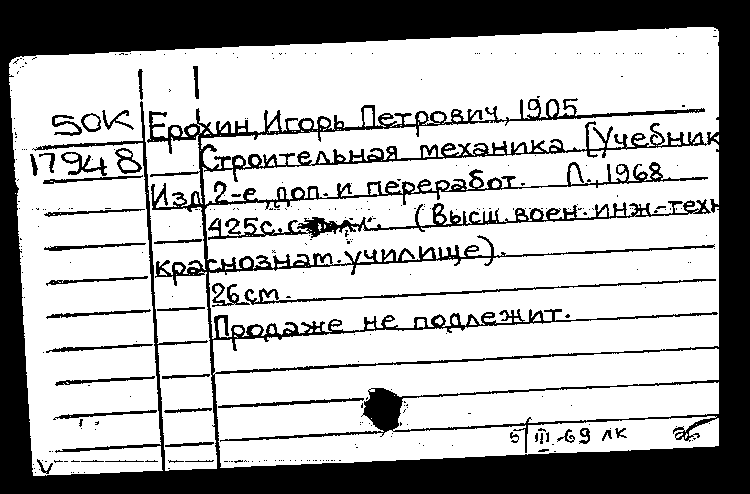 50К Ерохин, Игорь Петрович, 1905
17948 Строительная механика. [Учебник
Изд. 2-е, доп. и переработ. Л., 1968
425с. с (Высш. воен. инж.-техн
краснознам. училище).
26 см.
Продаже не подлежит.
5/III-69 лк